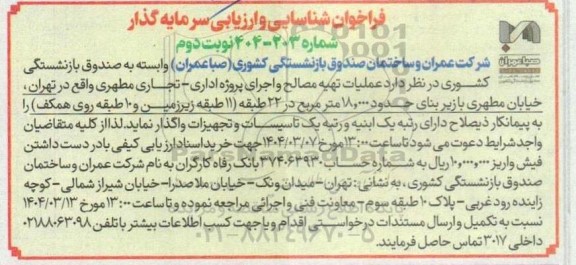 فراخوان شناسایی و ارزیابی سرمایه گذار
شماره ۲۰۳-۴۰۴ نوبت دوم
صباعمران
شرکت عمران و ساختمان صندوق بازنشستگی کشوری (صبا عمران) وابسته به صندوق بازنشستگی
کشوری در نظر دارد عملیات تهیه مصالح و اجرای پروژه اداری - تجاری مطهری واقع در تهران،
خیابان مطهری با زیر بنای حدود ۱۸۰۰۰ متر مربع در ۲۲ طبقه (۱۱ طبقه زیرزمین و ۱۰ طبقه روی همکف) را
به پیمانکار ذیصلاح دارای رتبه یک ابنیه و رتبه یک تاسیسات و تجهیزات واگذار نماید. لذا از کلیه متقاضیان
واجد شرایط دعوت می شود تا ساعت ۱۳:۰۰ مورخ ۱۴۰۴/۰۳/۰۷ جهت خرید اسناد ارزیابی کیفی با در دست داشتن
فیش واریز ۱۰،۰۰۰،۰۰۰ ریال به شماره حساب ۳۷۴۰۶۳۹۳ بانک رفاه کارگران به نام شرکت عمران و ساختمان
صندوق بازنشستگی کشوری، به نشانی: تهران - میدان ونک - خیابان ملاصدرا - خیابان شیراز شمالی - کوچه
زاینده رود غربی - پلاک ۱۰ طبقه سوم - معاونت فنی و اجرائی مراجعه نموده و تا ساعت ۱۳:۰۰ مورخ ۱۴۰۴/۰۳/۱۳
نسبت به تکمیل و ارسال مستندات درخواستی اقدام و یا جهت کسب اطلاعات بیشتر با تلفن ۰۲۱۸۸۰۶۳۰۹۸
داخلی ۳۰۱۷ تماس حاصل فرمایند.
۰۲۱-۸۸۳۴۹۶۷۰-۵